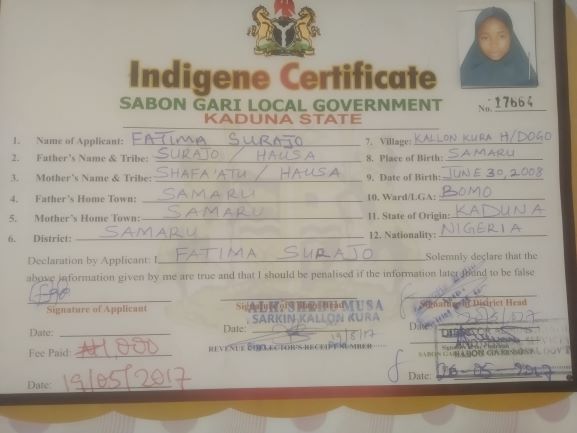 Indigene Certificate
SABON GARI LOCAL GOVERNMENT
KADUNA STATE
No. 17664
1. Name of Applicant: FATIMA SURAJO
2. Father's Name & Tribe: SURAJO / HAUSA
3. Mother's Name & Tribe: SHAFA'ATU / HAUSA
4. Father's Home Town: SAMARU
5. Mother's Home Town: SAMARU
6. District: SAMARU
7. Village: KALLON KURA H/DOGO
8. Place of Birth: SAMARU
9. Date of Birth: JUNE 30, 2008
10. Ward/LGA: BOMO
11. State of Origin: KADUNA
12. Nationality: NIGERIA
Declaration by Applicant: I FATIMA SURAJO Solemnly declare that the
above information given by me are true and that I should be penalised if the information later found to be false
Signature of Applicant
Date:
Fee Paid: ₦1,000
Date: 19/05/2017
MUSA
SARKIN KALLON KURA
Date: 19/5/17
REVENUE COLLECTOR'S RECEIPT NUMBER
Signature of District Head
Date:
Date: 2017